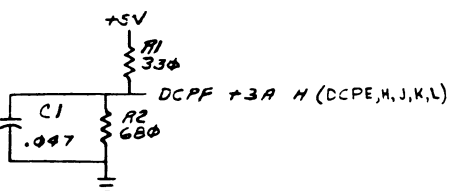 +5V
R1
33Ø
DCPF +3A H (DCPE,H,J,K,L)
C1
.Ø47
R2
68Ø